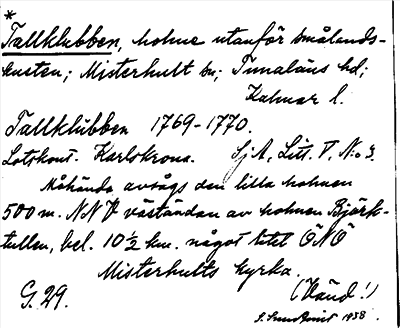 *
Tallklubben, holme utanför smålands-
kusten; Misterhult sn; Tunaläns hd;
Kalmar l.
Tallklubben 1769-1770.
Lotskont. Karlskrona. SjA, Litt. V, N:o 3.
Måhända avsågs den lilla holmen
500 m. NNV väständan av holmen Björk-
tullen, bel. 10½ km. något litet ÖNÖ
Misterhults kyrka.
G. 29. (Vänd!)
1938.